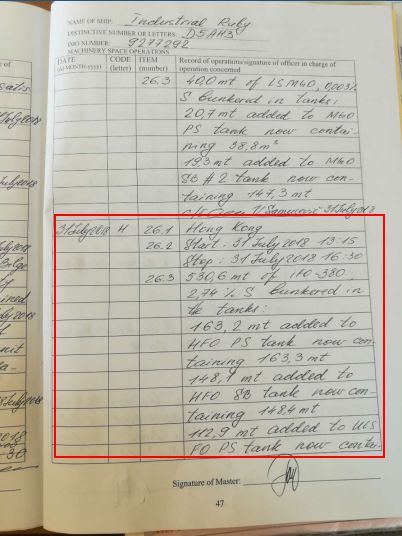 NAME OF SHIP: Industrial Ruby
DISTINCTIVE NUMBER OR LETTERS: D5AH3
IMO NUMBER: 9277292
MACHINERY SPACE OPERATIONS
DATE CODE ITEM Record of operations/signature of officer in charge of
(dd-MONTH-yyyy) (letter) (number) operation concerned
26.3 40,0 mt of LSMGO, 0,003%
S bunkered in tanks:
20,7 mt added to MGO
PS tank now contai-
ning 38,8 m³
19,3 mt added to MGO
SB #2 tank now con-
taining 147,3 mt
31 July 2018
31 July 2018 H 26.1 Hong Kong
26.2 Start: 31 July 2018 13:15
Stop: 31 July 2018 16:30
26.3 530,6 mt of IFO-380
2,74 % S bunkered in
tanks:
163,2 mt added to
HFO PS tank now con-
taining 163,3 mt
148,1 mt added to
HFO SB tank now con-
taining 148,4 mt
112,9 mt added to ULS
FO PS tank now contai-
Signature of Master:
47